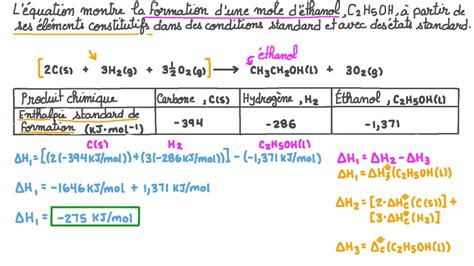 L'équation montre la formation d'une mole d'éthanol, C₂H₅OH, à partir de
ses éléments constitutifs dans des conditions standard et avec des états standard.
éthanol
[2C(s) + 3H₂(g) + 3½O₂(g)] → CH₃CH₂OH(l) + 3O₂(g)
Produit chimique Carbone, C(s) Hydrogène, H₂ Éthanol, C₂H₅OH(l)
Enthalpie standard de formation (kJ·mol⁻¹) -394 -286 -1,371
C(s) H₂ C₂H₅OH(l)
ΔH₁=[(2(-394kJ/mol))+(3(-286kJ/mol))]-(-1,371 kJ/mol)
ΔH₁ = -1646kJ/mol + 1,371 kJ/mol
ΔH₁ = -275 kJ/mol
ΔH₁ = ΔH₂ - ΔH₃
ΔH₁ = ΔH°f(C₂H₅OH(l))
ΔH₂ = [2·ΔH°c(C(s))] +
[3·ΔH°c(H₂)]
ΔH₃ = Δ°c(C₂H₅OH(l))